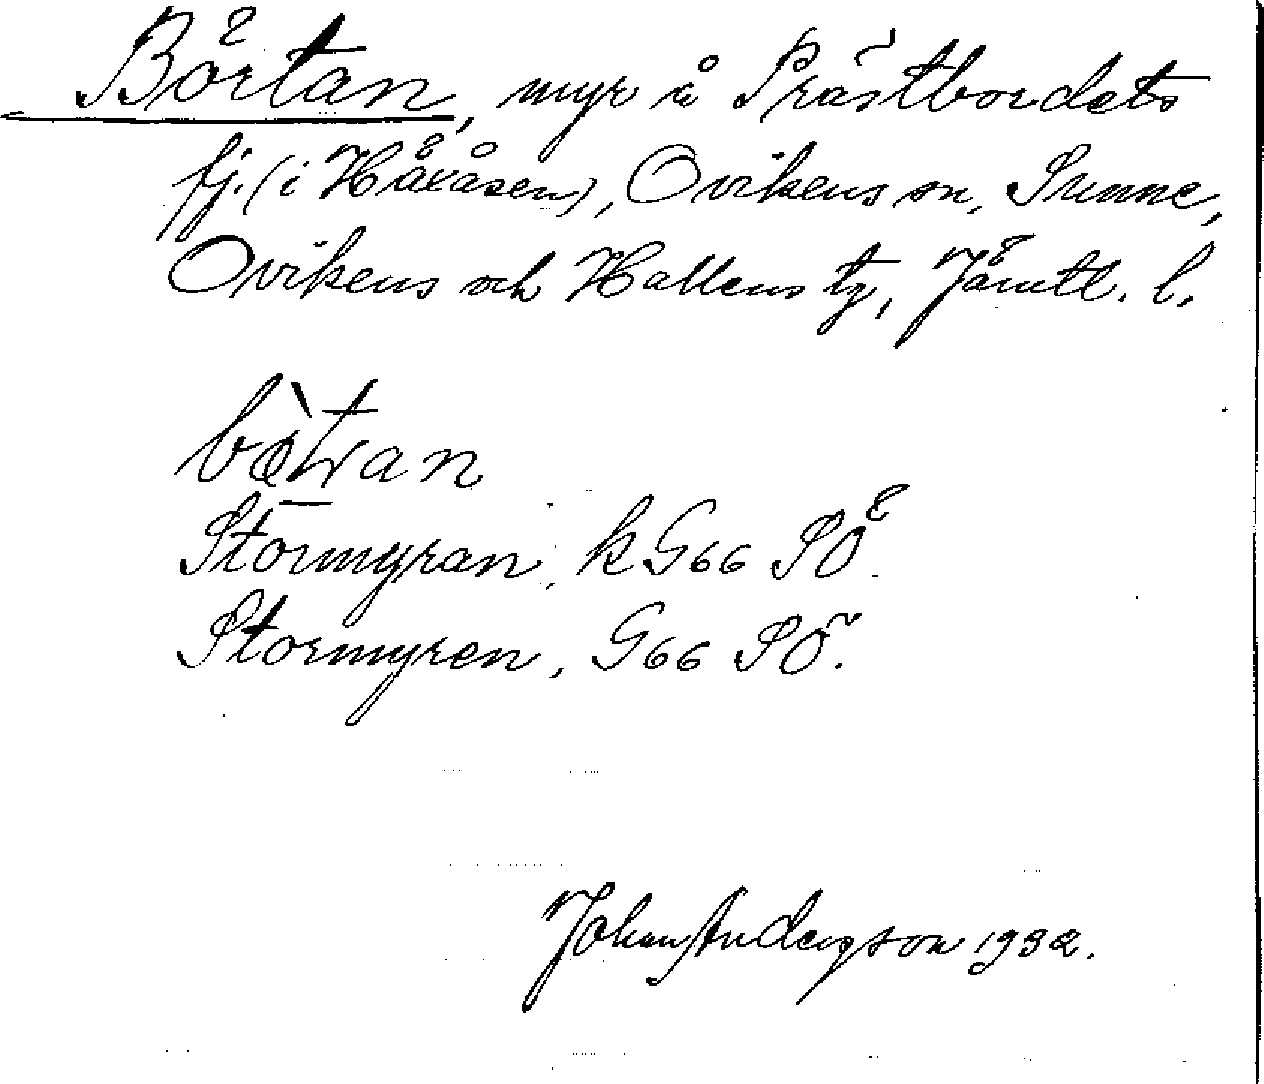 Börtan, myr å Prästbordets
fj. (i Håxåsen), Ovikens sn, Sunne,
Ovikens och Hallens tg, Jämtl. l.
bòtran
Stormyran, k G66 SÖ.
Stormyren, G66 SÖ.
Johan Anderson 1932.